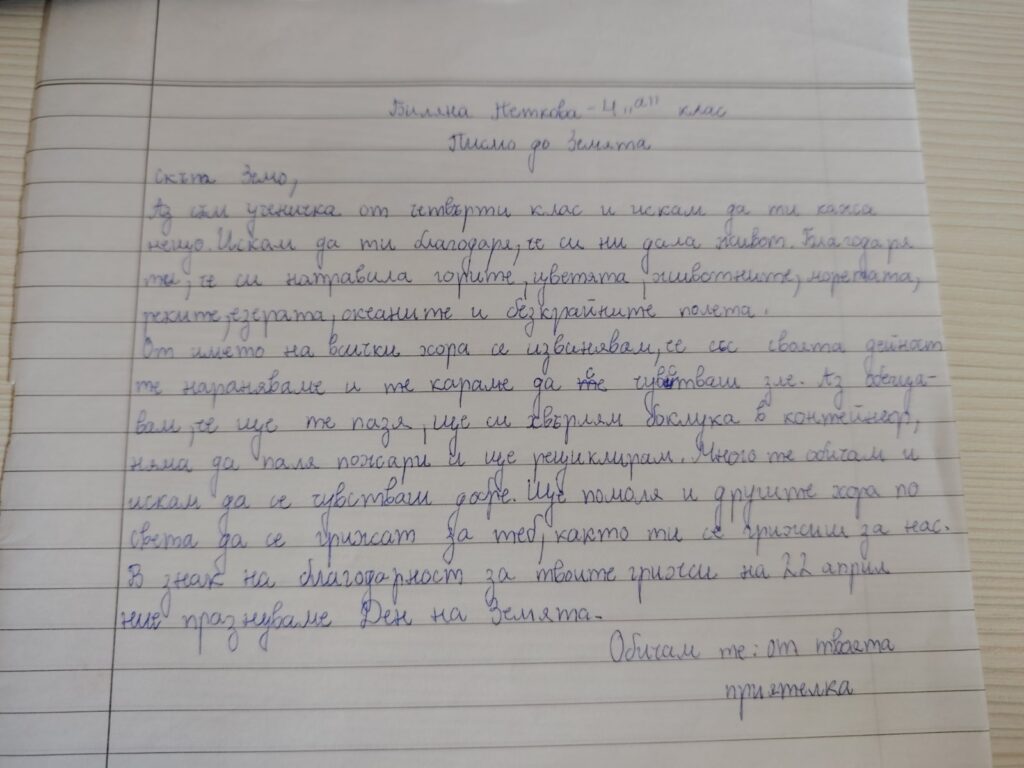 Биляна Неткова - 4 "а" клас
Писмо до Земята
Скъпа Земьо,
Аз съм ученичка от четвърти клас и искам да ти кажа
нещо. Искам да ти благодаря, че си ни дала живот. Благодаря
ти, че си направила горите, цветята, животните, моретата,
реките, езерата, океаните и безкрайните полета.
От името на всички хора се извинявам, че със своята дейност
те нараняваме и те караме да се чувстваш зле. Аз обеща-
вам, че ще те пазя, ще си хвърлям боклука в контейнер,
няма да паля пожари и ще рециклирам. Много те обичам и
искам да се чувстваш добре. Ще помоля и другите хора по
света да се грижат за теб, както ти се грижиш за нас.
В знак на благодарност за твоите грижи на 22 април
ние празнуваме Ден на Земята.
Обичам те: от твоята
приятелка